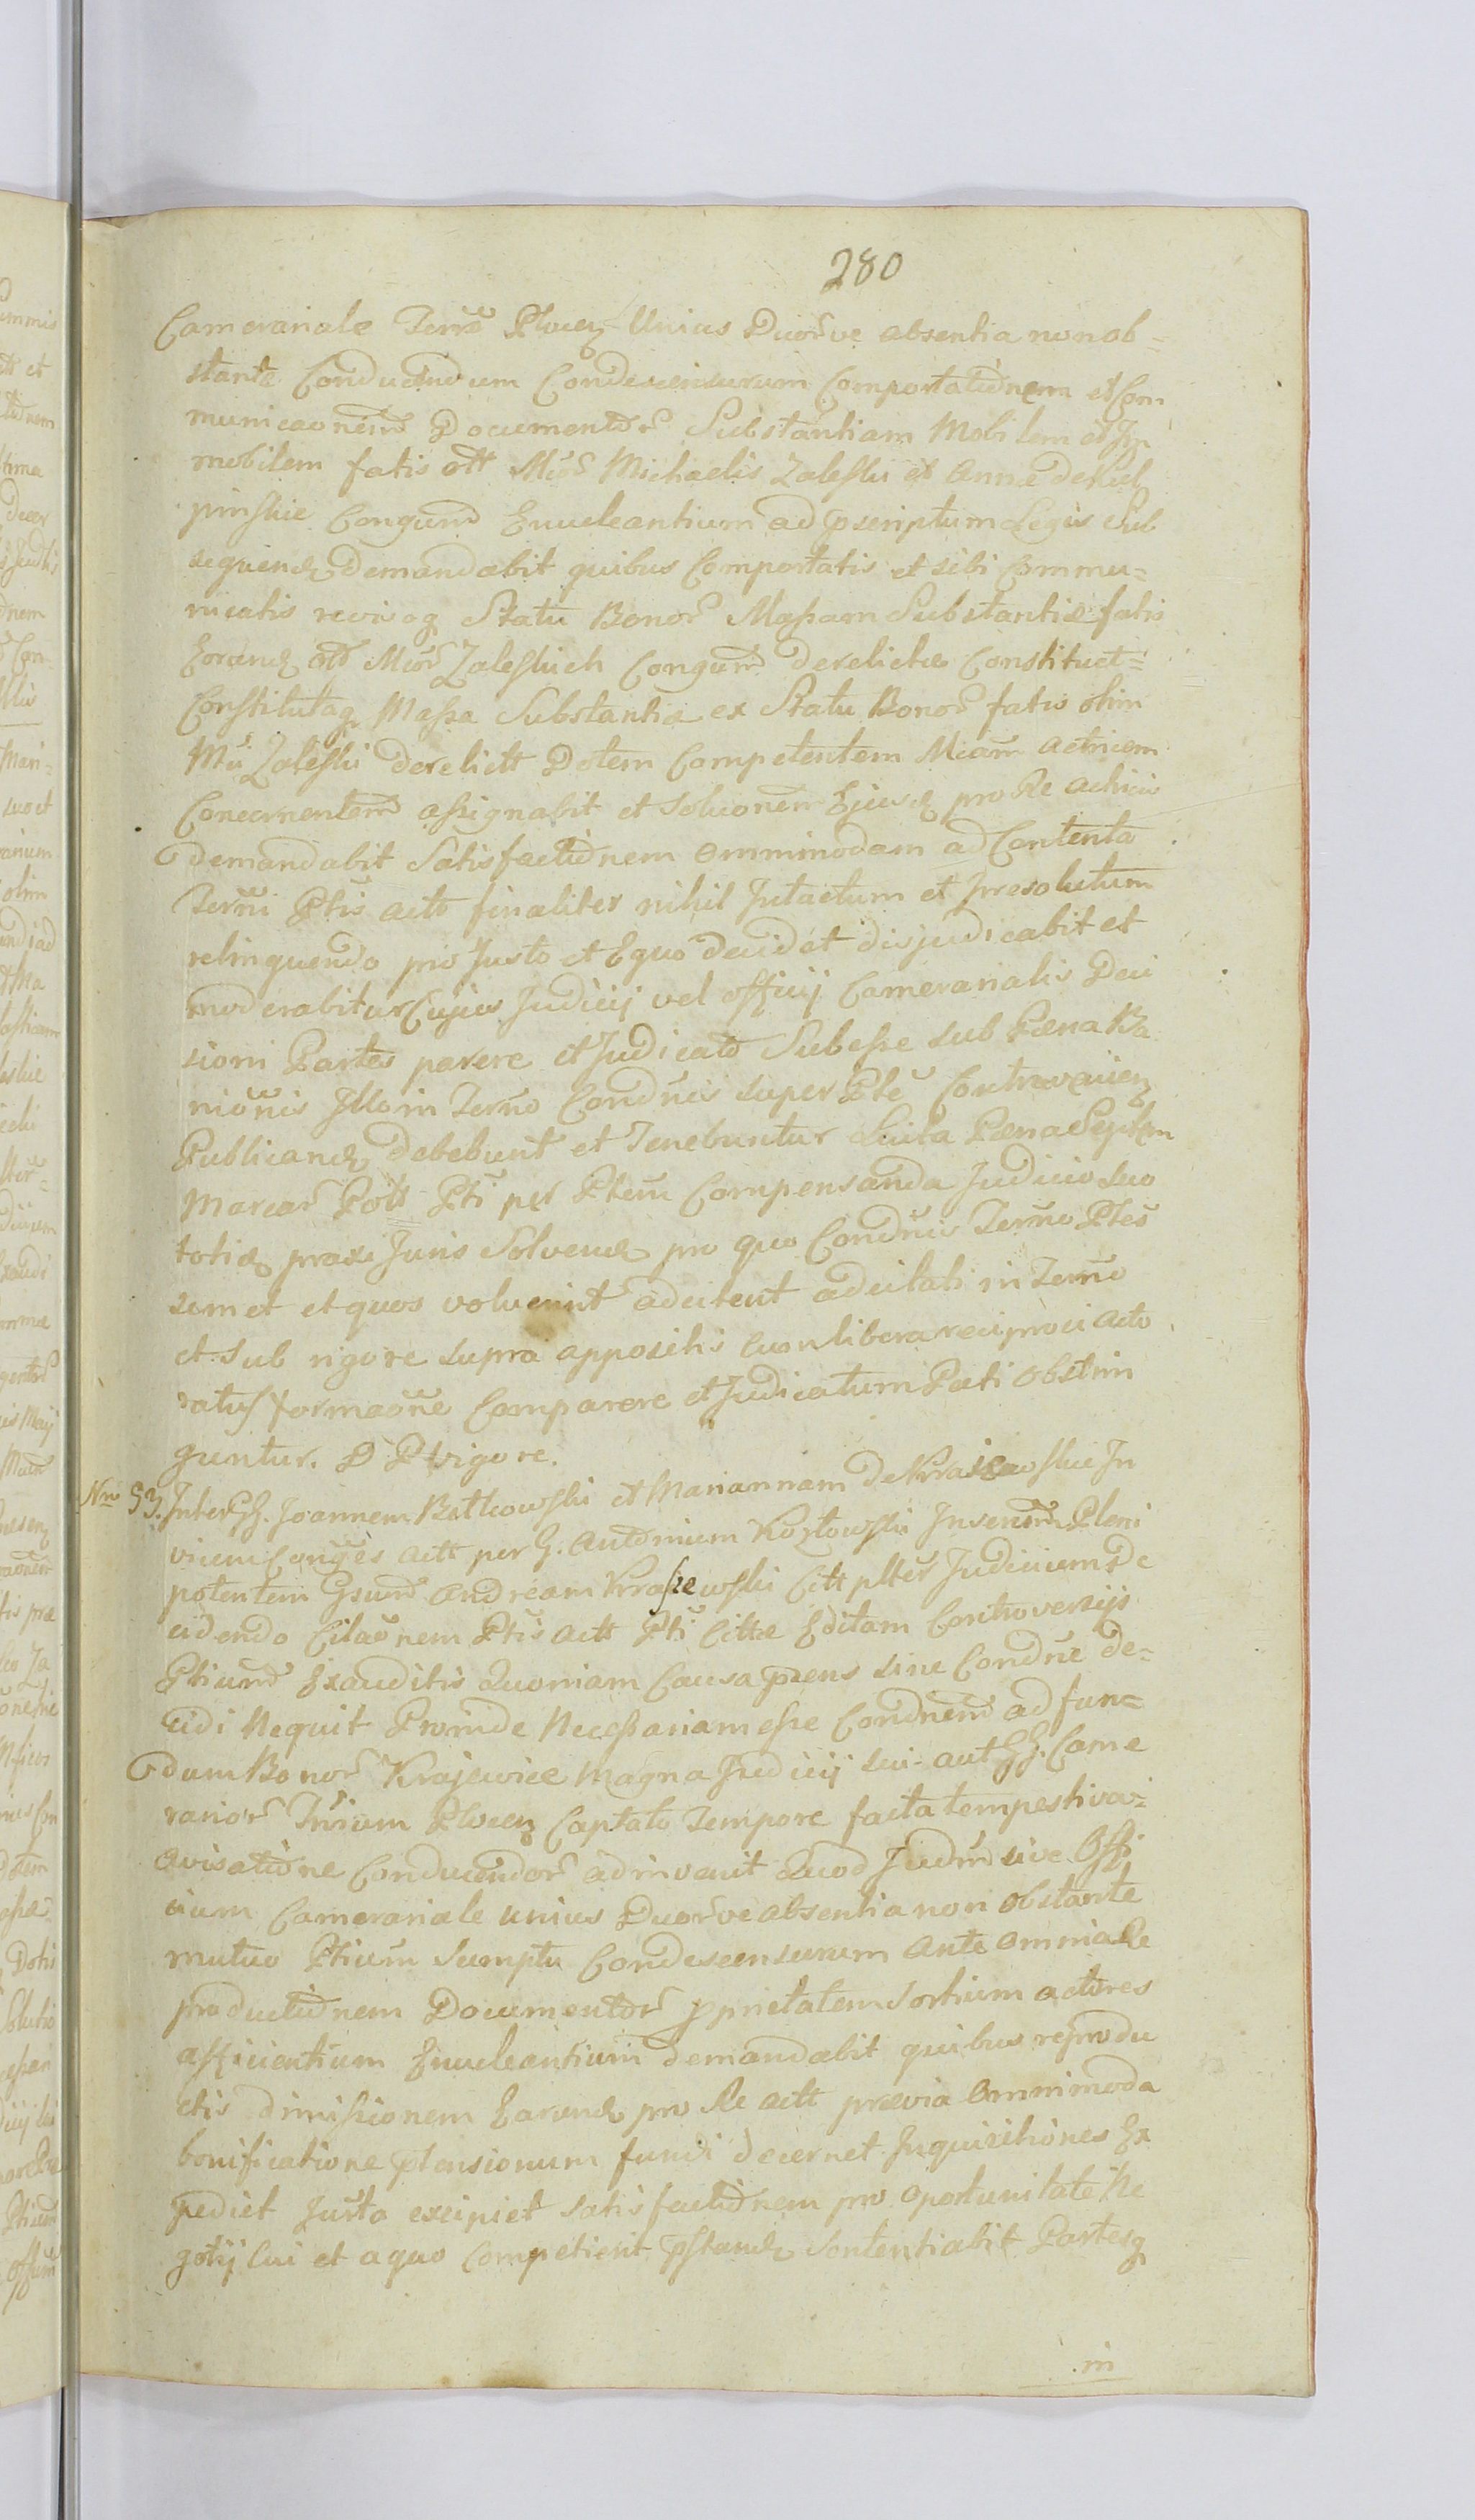 280
Camerariale Terræ Plocen Unius Duorve absentia non ob=
stante Conducendum Condescensurum Comportationem et Com
municaonem Documentor Substantiam Mobilem et Im
mobilem fatis olt Michaelis Zaleski et Annæ de
pinskie Congum Enucleantium ad pscriptum Legis Sub
sequend demandabit quibus Comportatis et sibi Commu=
nicatis revisoq Statu Bonor Massam Substantiæ fatis
Eorund olt Mcor Zaleskich Congum derelictæ Constituet=
Constitutaq Massa Substantiæ ex Statu Bonor fatis olim
Mci Zaleski derelict Dotem Competentem Mcam actricem
Concernentem assignabit et Soluonem Ejusd pro Re actricis
demandabit Satisfactionem omnimodam ad Contenta
Termi Ptis actt finaliter nihil Intactum et Irresolutum
relinquendo pro Justo et Equo decidet disjudicabit et
moderabitur Cujus Judicij vel officij Camerarialis Deci
sioni Partes parere et Judicato Subesse sub Pæna Ba
nionis Illo in Termo Condnis super Pte Contravenien
Publicand debebunt et Tenebuntur Luita Pæna Septem
Marcar Poll Pti per Ptem Compensanda Judicio suo
toties praxi Juris Solvend pro quo Condnis Termo Ptes
semet et quos voluerint adcitent adcitati in Termo
et sub rigore supra appositis cum libera reciproci acto
ratus formaone Comparere et Judicatum Pati obstrin
guntur. D P Vigore.
Nro 53. Inter GG. Joannem Betkowski et Mariannam de Krasiewskie In
vicem Conges actt per G. Antonium Kozłowski Insertum Pleni
potentem Gsum Andream Krasiewski Citt plter Judicium De
cidendo Citaonem Ptis actt Pti Cittæ Editam Controversijs
Ptium Exauditis Quoniam Causa præns sine Condne de=
cidi Nequit Proinde Necessariam esse Condnem ad fun=
dum Bonor Krajewice Magna Judicij sui aut GG. Came
rarior Trium Plocen Captato Tempore facta tempestiva=
avisatione Conducendor adinvenit Quod Judm sive Offi
cium Camerariale unius Duorve absentia non obstante
mutuo Ptium Sumptu Condescensurum Ante omnia Re
productionem Documentor pprietatem Sortium actores
afficientium Enucleantium demandabit quibus reprodu
ctis dimissionem Earund pro Re actt prævia Omnimoda
bonificatione ptensionum fundi decernet Inquisitiones Ex
pediet Justa excipiet satisfactionem pro oportunitate Ne
gotij Cui et a quo Competierit pstand Sententiabit Partesq
in